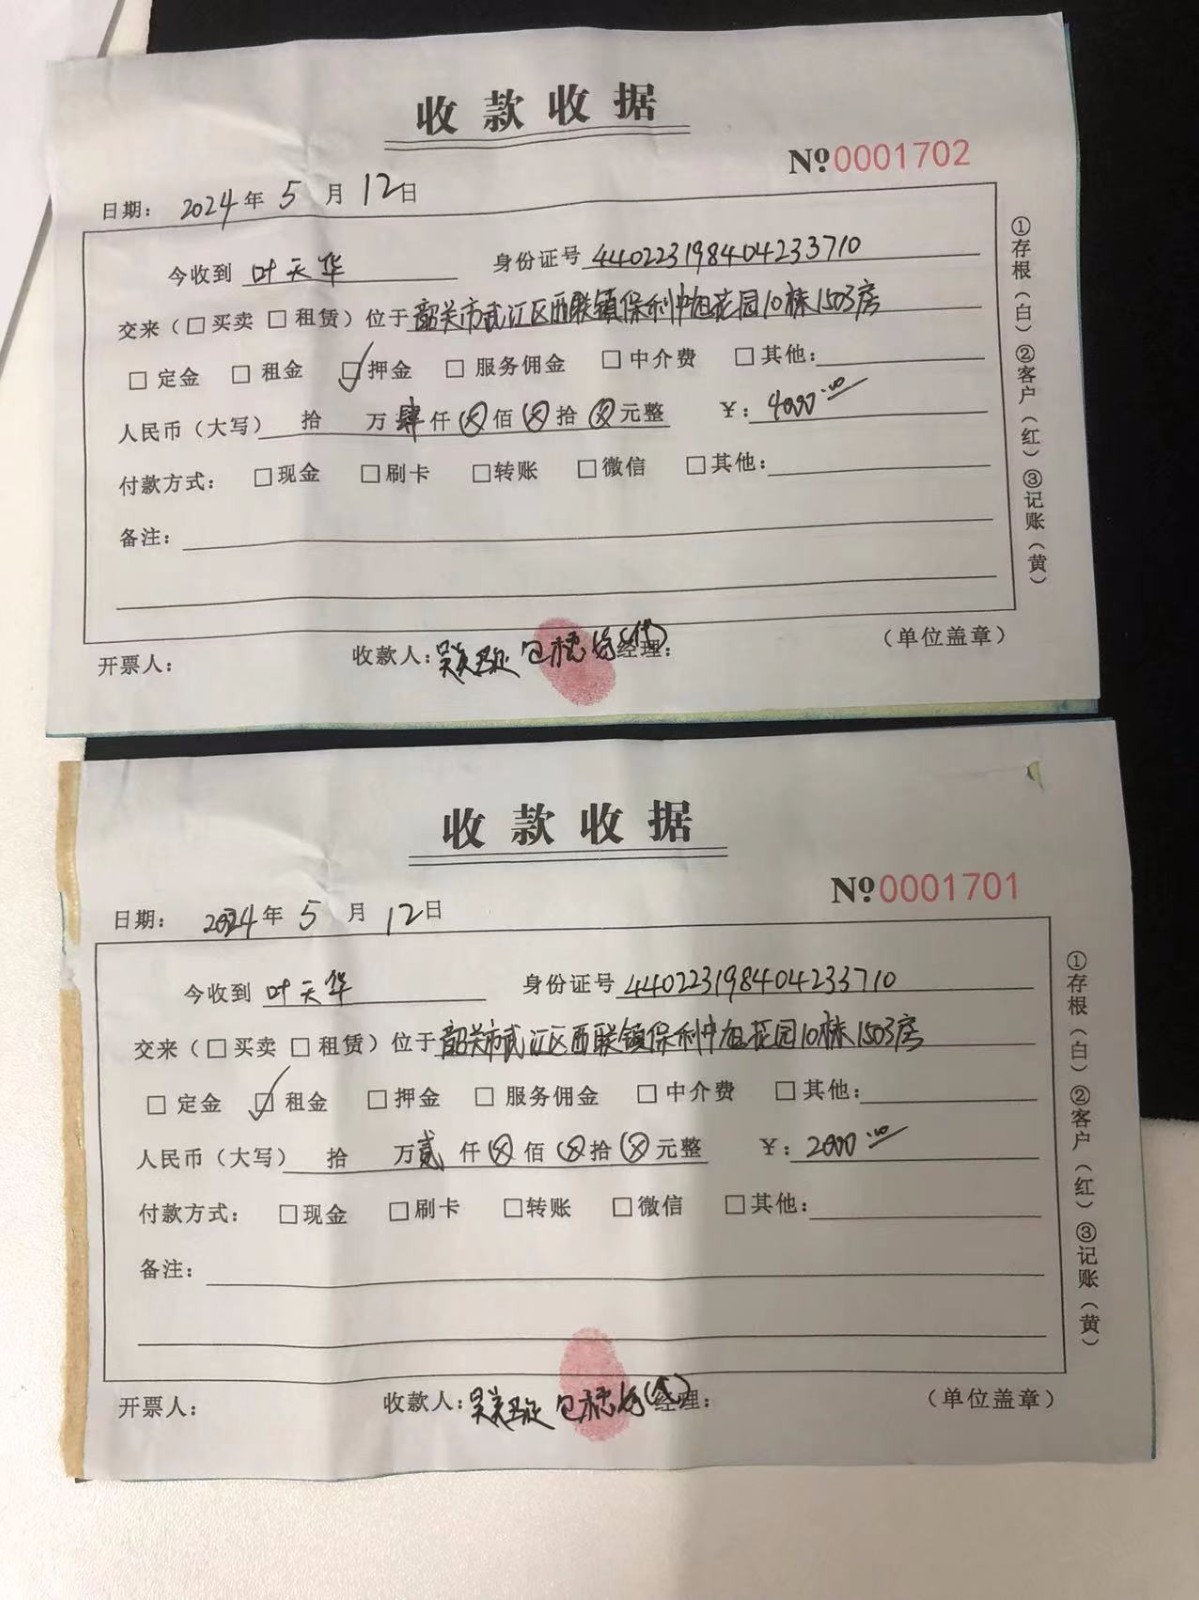 收款收据
№0001702
日期： 2024年5月12日
今收到 叶天华 身份证号 440223198404233710
交来（□买卖 □租赁）位于韶关市武江区西联镇保利中旭花园10栋1503房
□定金 □租金 ☑押金 □服务佣金 □中介费 □其他：
人民币（大写） 拾 万肆仟ⓧ佰ⓧ拾ⓧ元整 ￥：4000.00
付款方式： □现金 □刷卡 □转账 □微信 □其他：
备注：
开票人： 收款人： 包 （代） 经理： （单位盖章）
①存根（白）②客户（红）③记账（黄）
收款收据
№0001701
日期： 2024年5月12日
今收到 叶天华 身份证号 440223198404233710
交来（□买卖 □租赁）位于韶关市武江区西联镇保利中旭花园10栋1503房
□定金 ☑租金 □押金 □服务佣金 □中介费 □其他：
人民币（大写） 拾 万贰仟ⓧ佰ⓧ拾ⓧ元整 ￥：2000.00
付款方式： □现金 □刷卡 □转账 □微信 □其他：
备注：
开票人： 收款人： 包 （代） 经理： （单位盖章）
①存根（白）②客户（红）③记账（黄）